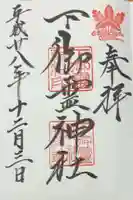 奉拝
下御霊神社
平成廿八年十二月三日